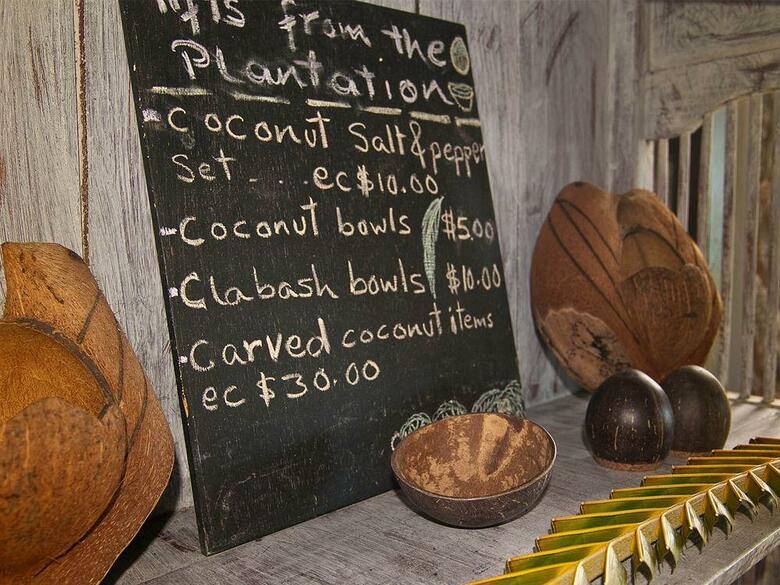 from the
Plantation
- Coconut Salt & pepper
Set .... ec $10.00
- Coconut bowls $5.00
- Clabash bowls $10.00
- Carved coconut items
ec $30.00